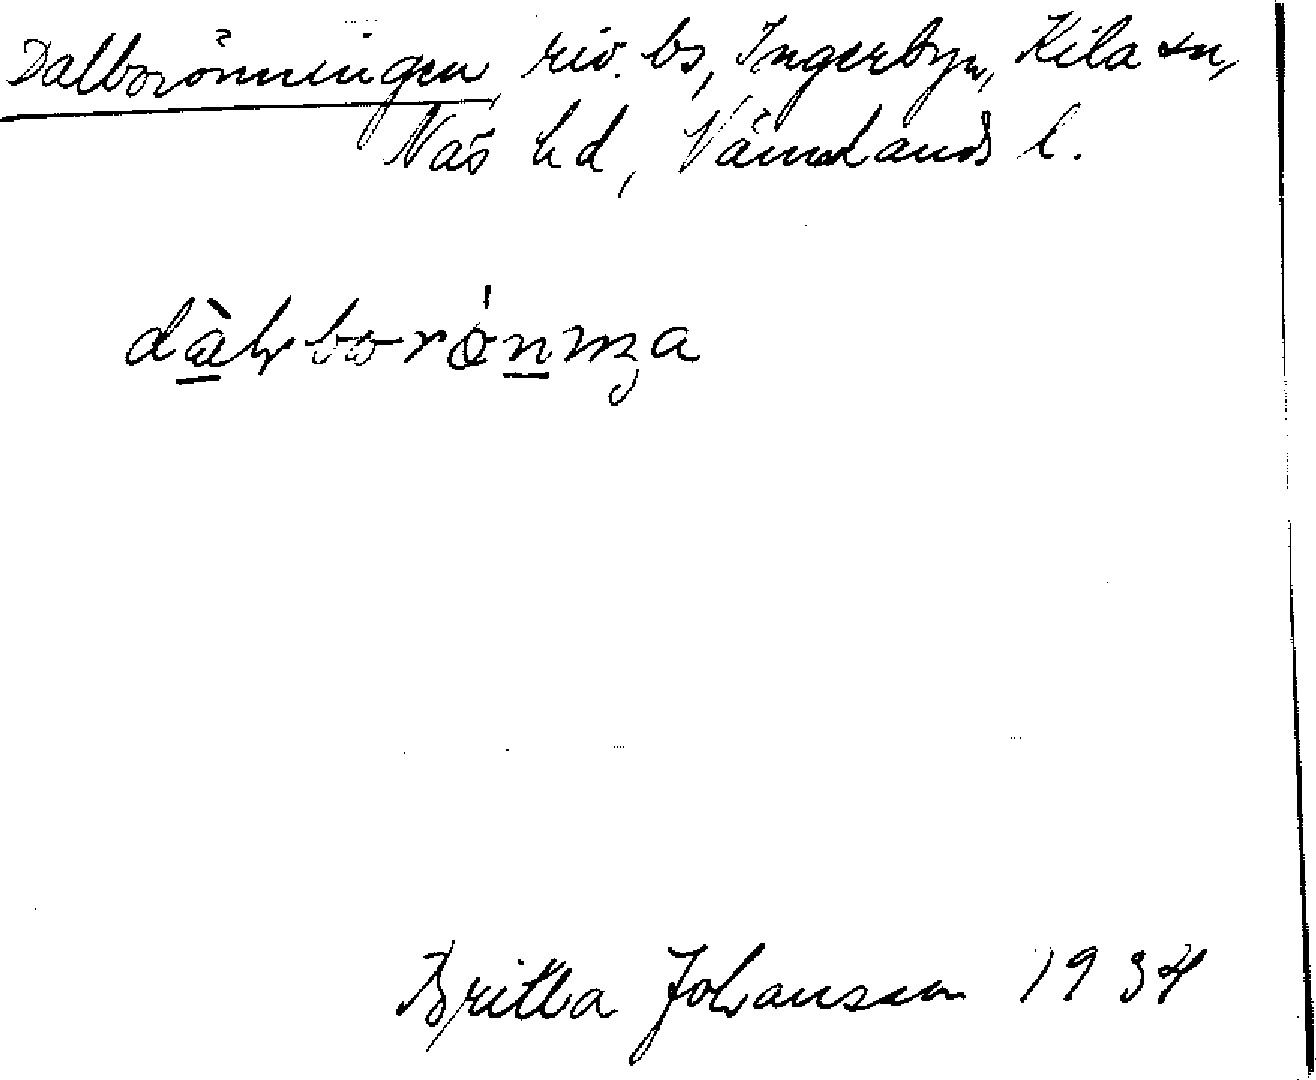 Dalborönningen, riv. bs, Ingerbyn, Kila sn,
Näs hd, Värmlands l.
dàlborǿnıŋa
Britta Johansson 1934